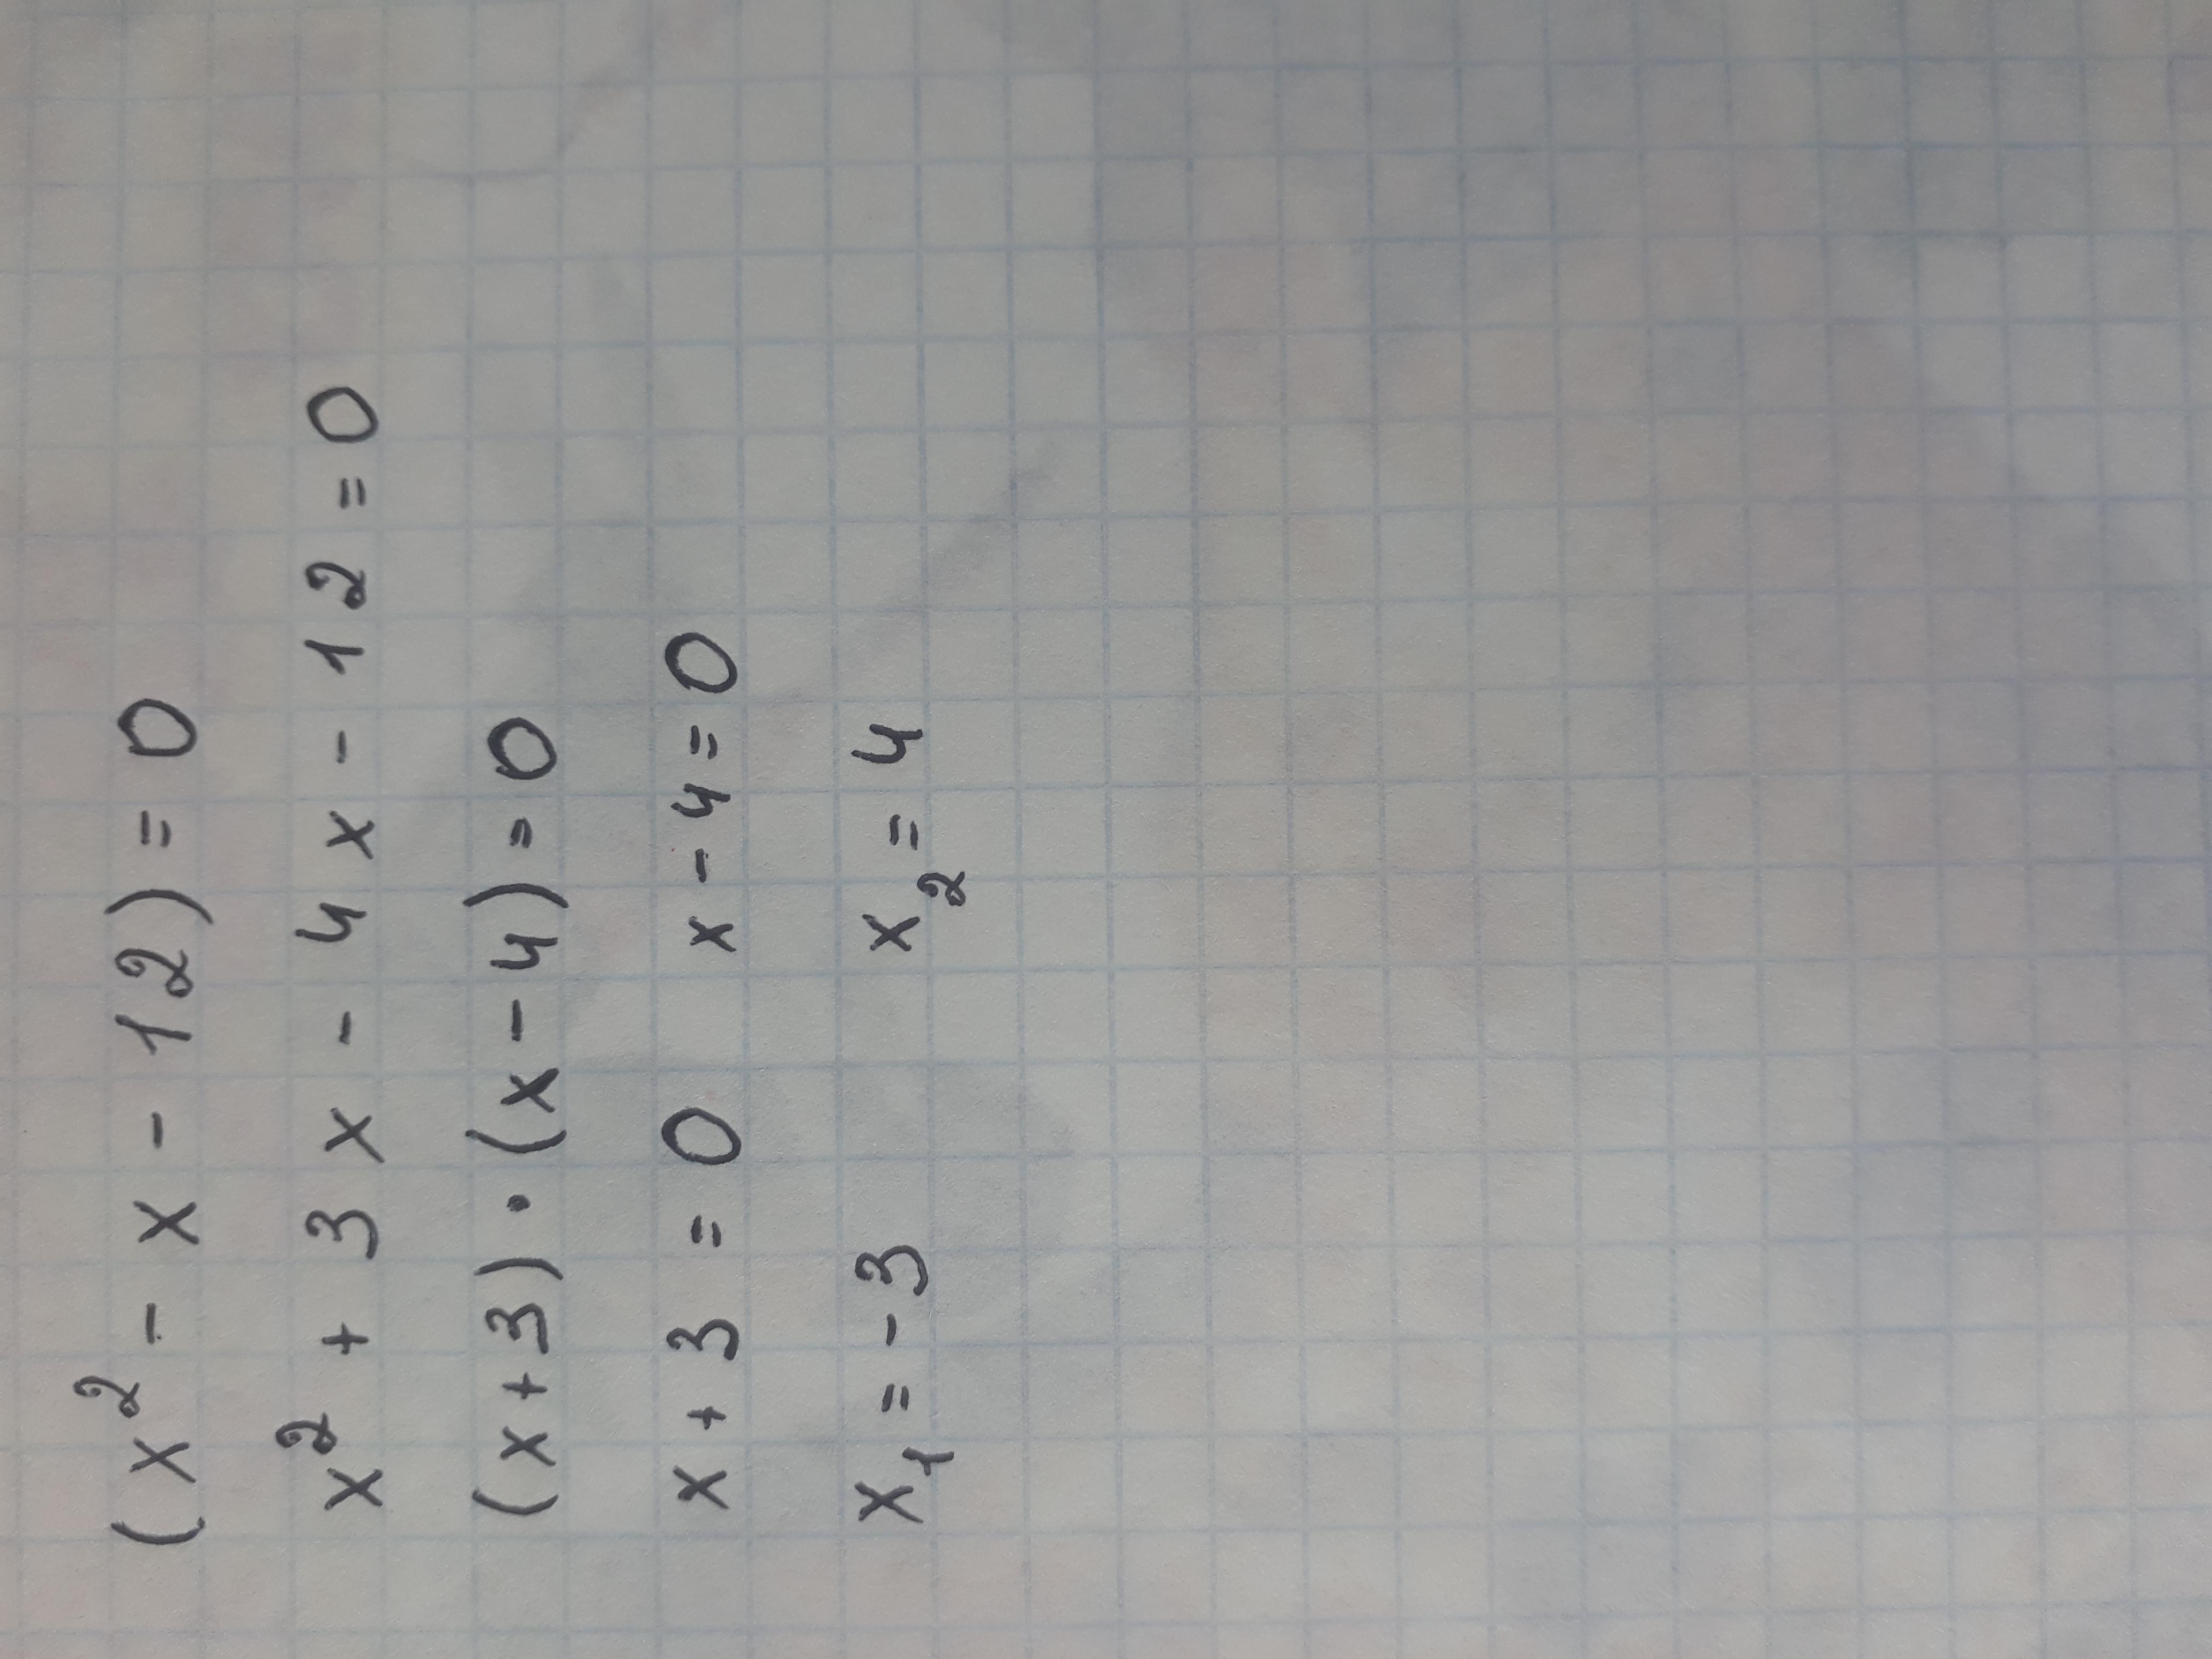 (x² - x - 12) = 0
x² + 3x - 4x - 12 = 0
(x+3)·(x-4)=0
x+3 = 0 x-4=0
x₁=-3 x₂=4